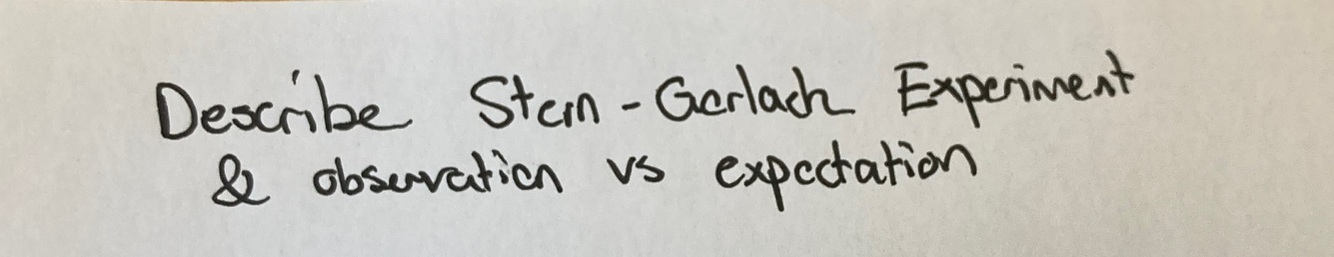 Describe Stern-Gerlach Experiment
& observation vs expectation